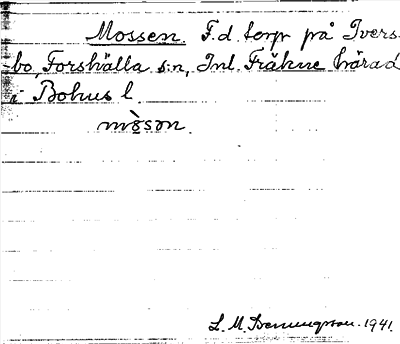 Mossen. F.d. torp på Ivers-
bo, Forshälla s:n, Inl. Fräkne härad
i Bohus l.
mòson.
L. M. 1941.